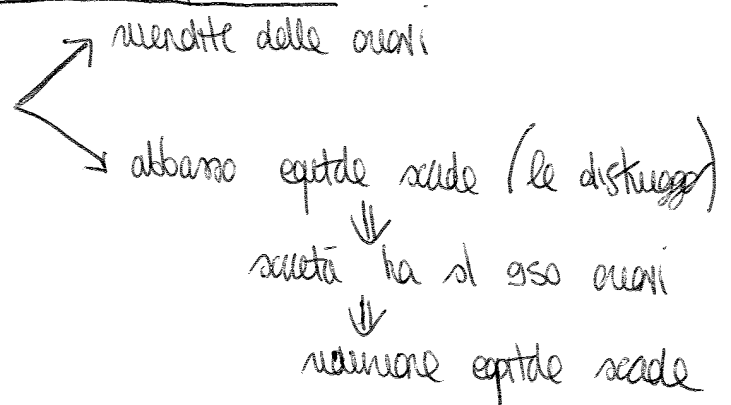 rivendite delle azioni
abbasso capitale sociale (le distruggo)
società ha sl 950 azioni
riduzione capitale sociale